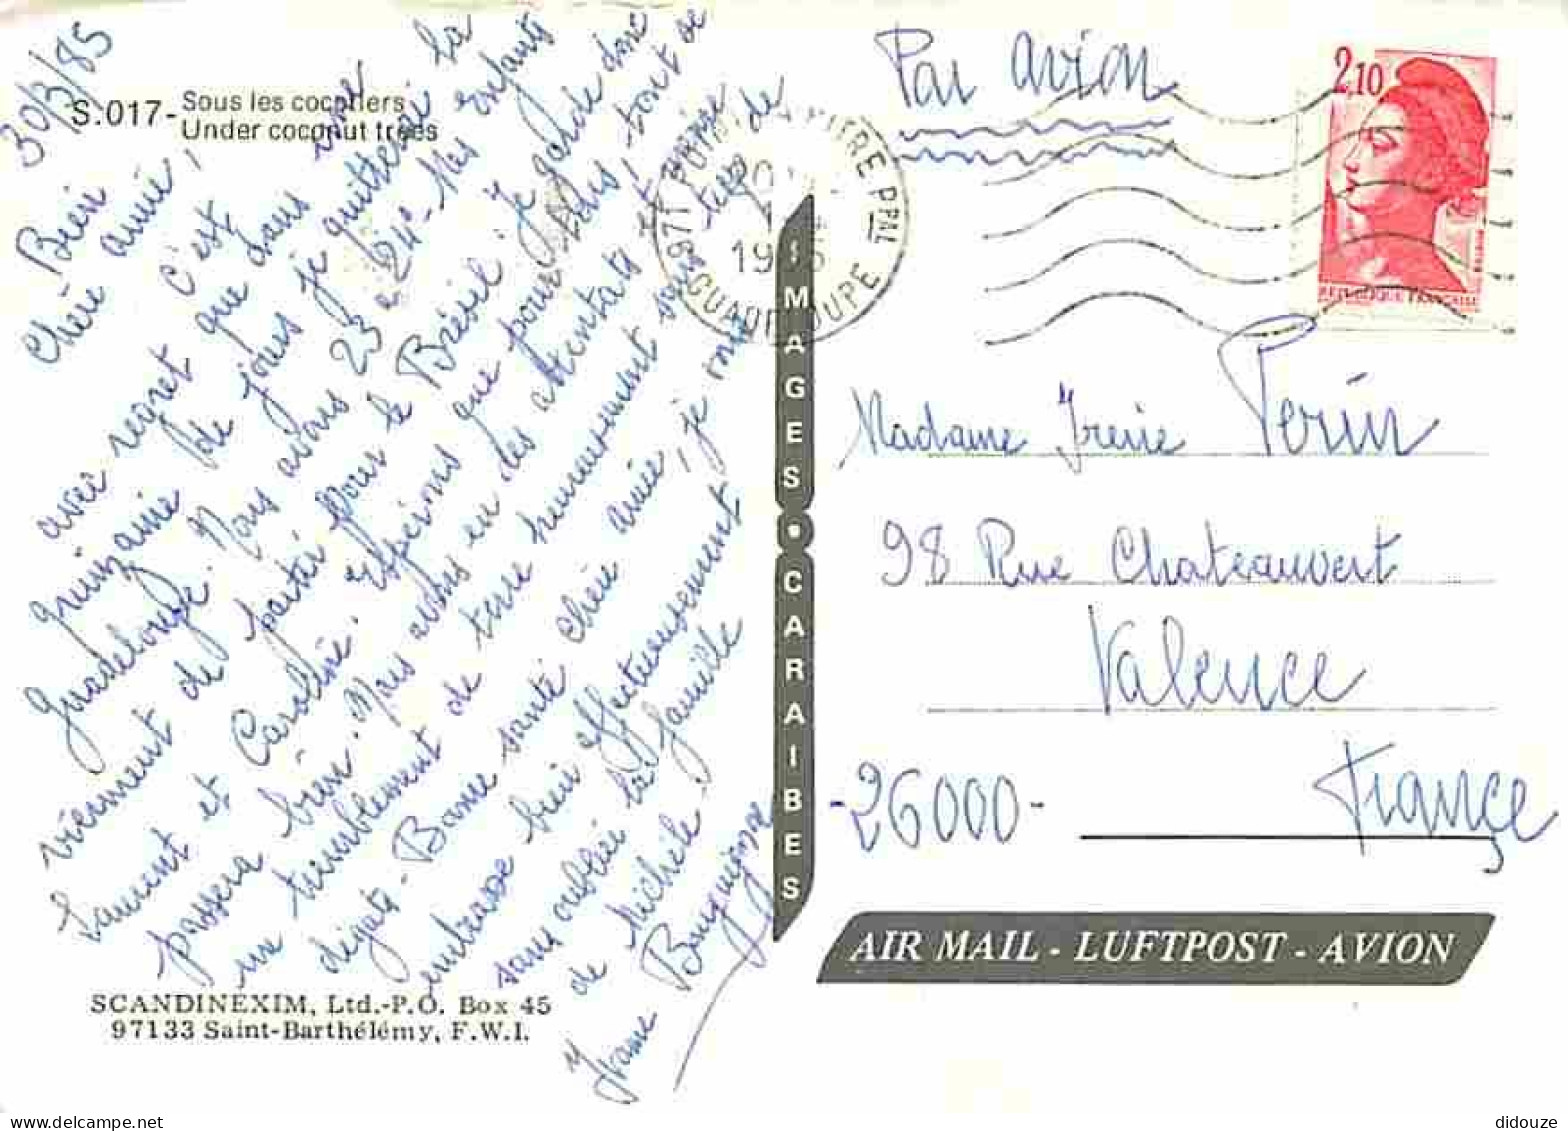 30/3/85
S.017- Sous les cocotiers
Under coconut trees
Bien
Chère amie,
C'est
avec regret que dans une
quinzaine de jours je quitterai la
Guadeloupe. Nous avons 23 à 24°. Mes enfants
viennent de partir pour le Brésil. Je garde donc
Laurent et Caroline. Espérons que pour tous, tout se
passera bien. Nous avons eu des attentats et même
un tremblement de terre heureusement sans trop de
dégâts. Bonne santé chère amie, je vous
embrasse bien affectueusement
sans oublier la famille
de Michèle
Y
SCANDINEXIM, Ltd.-P.O. Box 45
97133 Saint-Barthélémy, F.W.I.
IMAGES • CARAIBES
Par avion
2,10
REPUBLIQUE FRANÇAISE
971 PPAL
GUADELOUPE
Madame Irène Perin
98 Rue Chateauvert
Valence
-26000- France
AIR MAIL - LUFTPOST - AVION
didouze